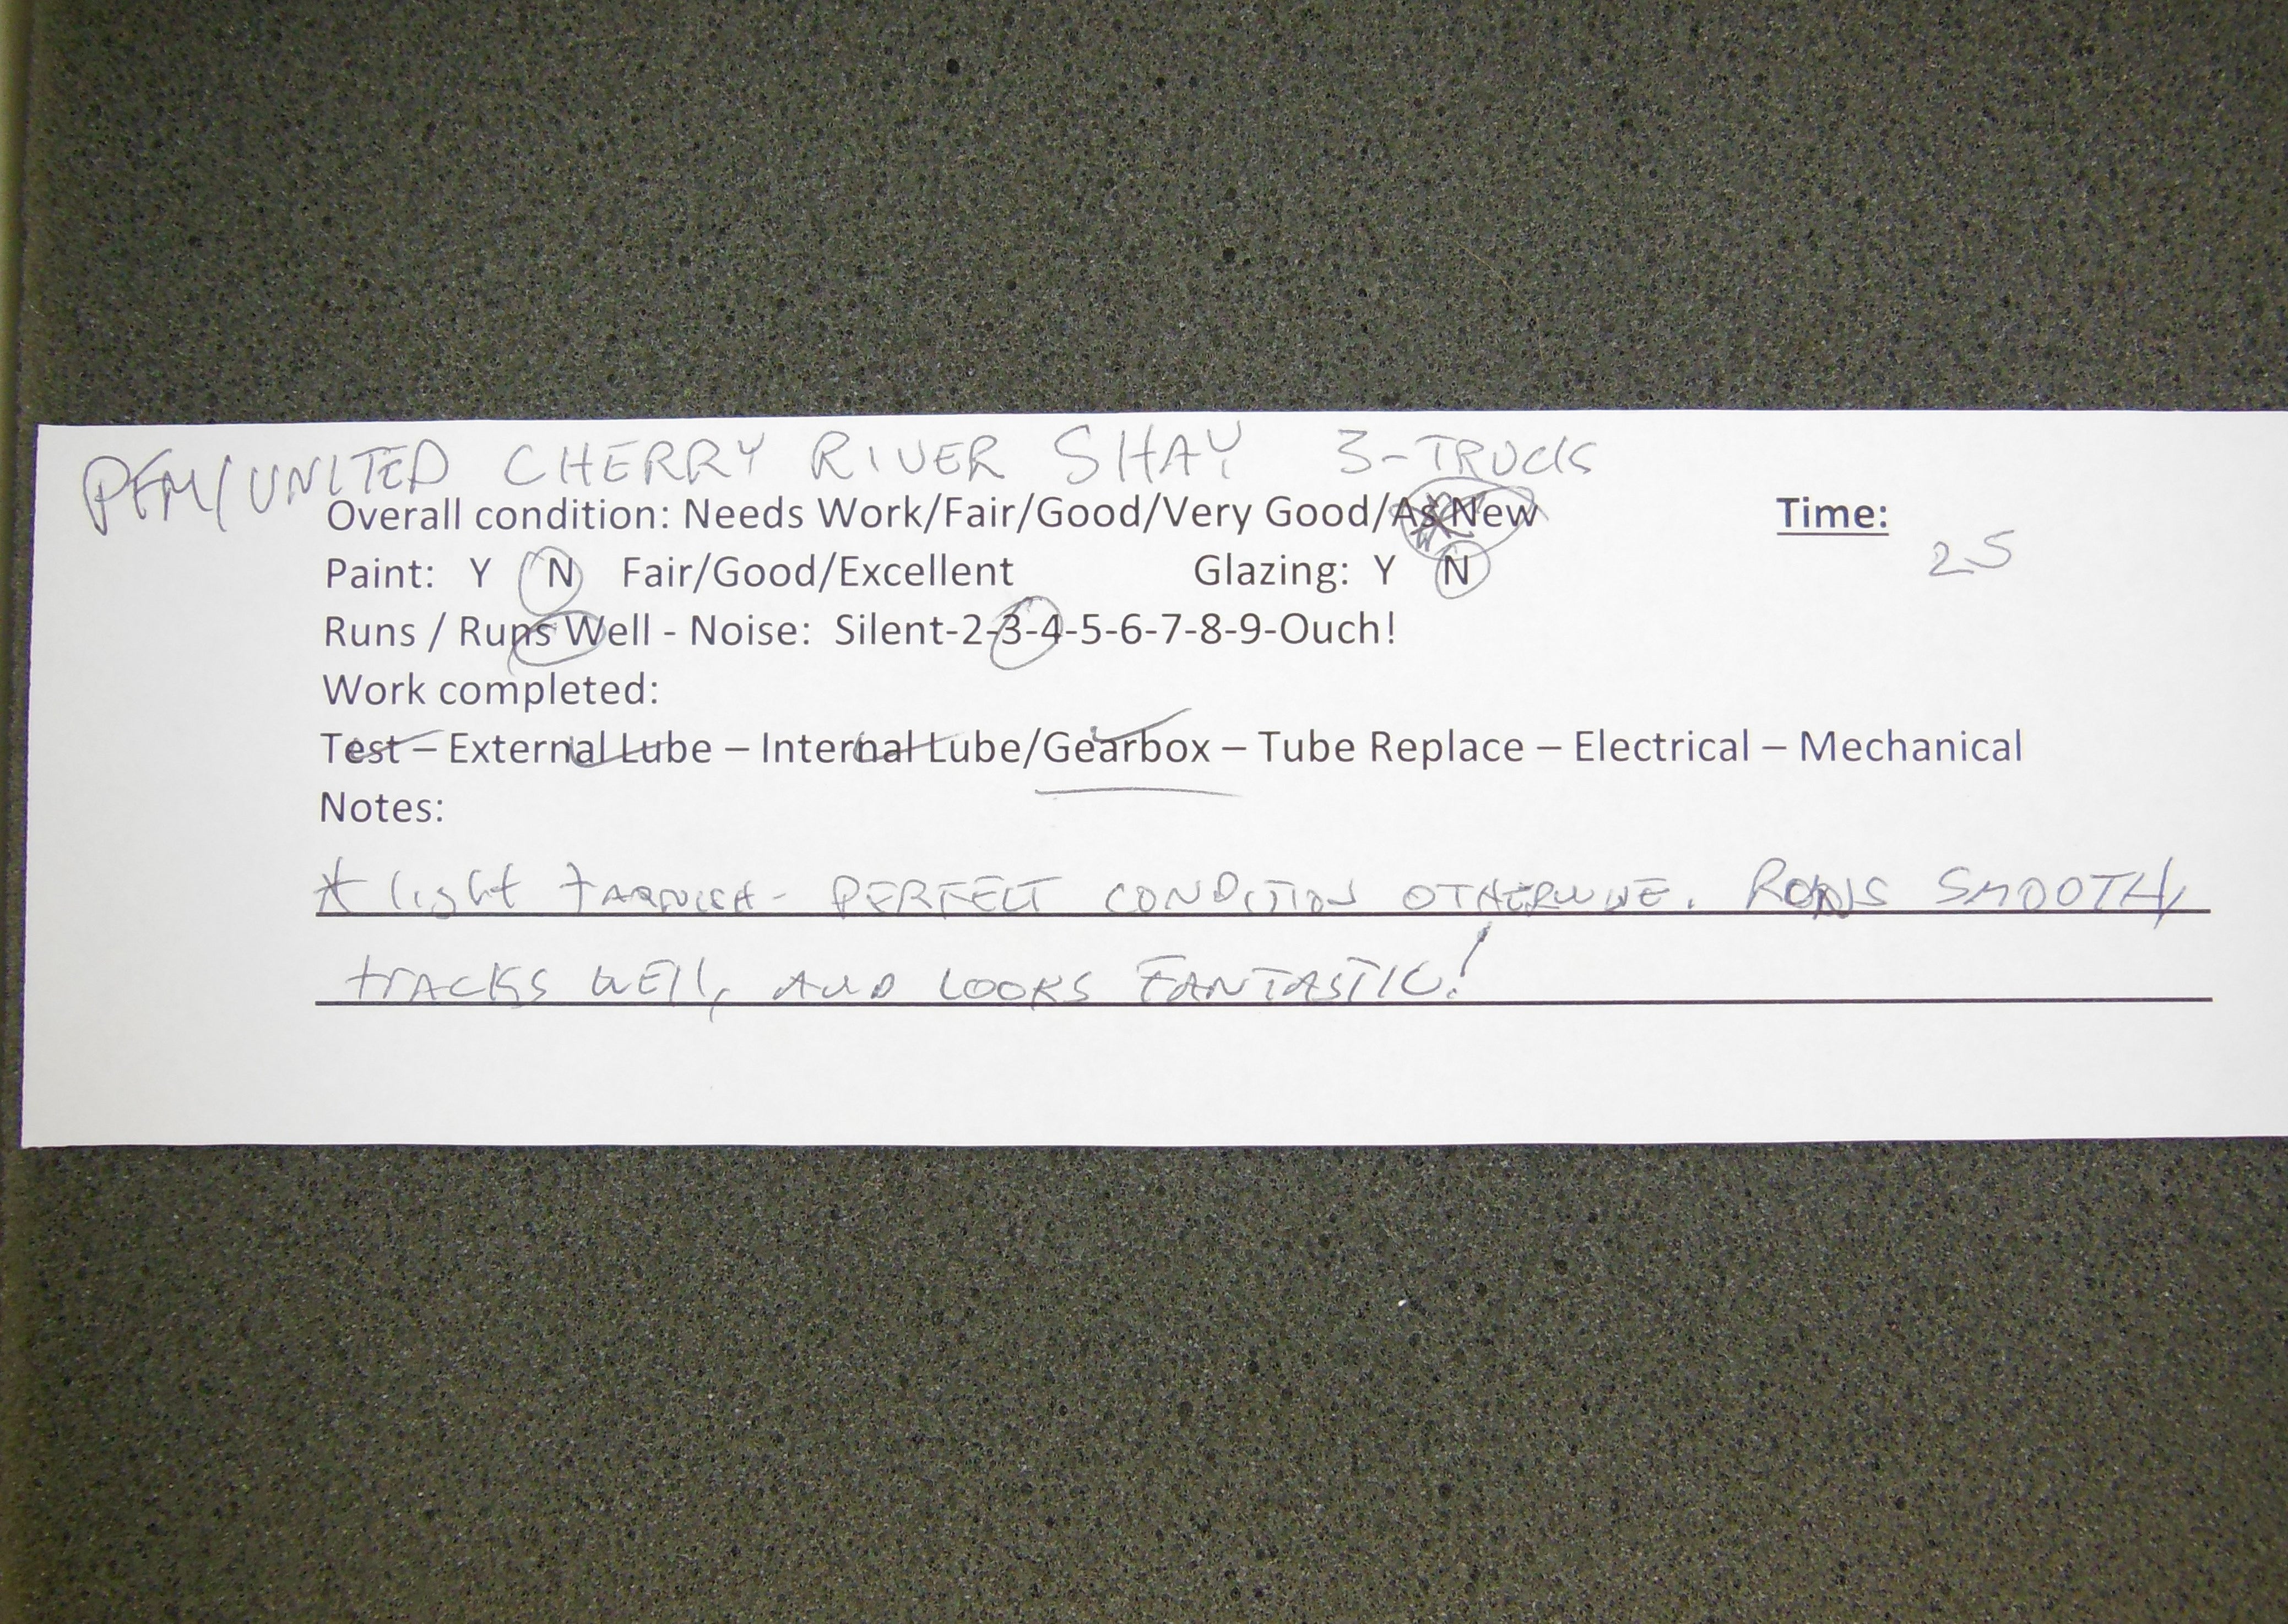 PFM/UNITED CHERRY RIVER SHAY 3-TRUCK
Overall condition: Needs Work/Fair/Good/Very Good/As New Time:
Paint: Y N Fair/Good/Excellent Glazing: Y N 25
Runs / Runs Well - Noise: Silent-2-3-4-5-6-7-8-9-Ouch!
Work completed:
Test – External Lube – Internal Lube/Gearbox – Tube Replace – Electrical – Mechanical
Notes:
* light TARNISH - PERFECT CONDITION OTHERWISE. RUNS SMOOTH,
TRACKS WELL, AND LOOKS FANTASTIC!